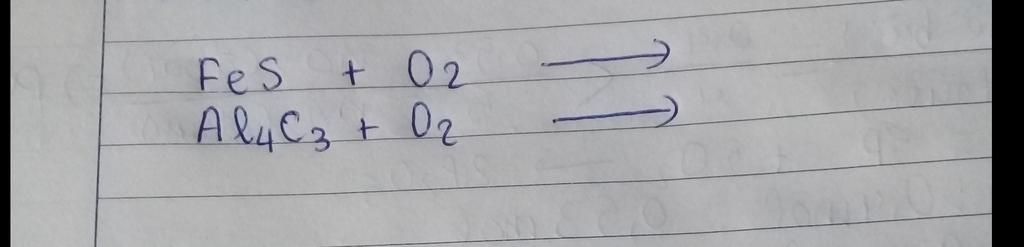 FeS + O2 →
Al4C3 + O2 →